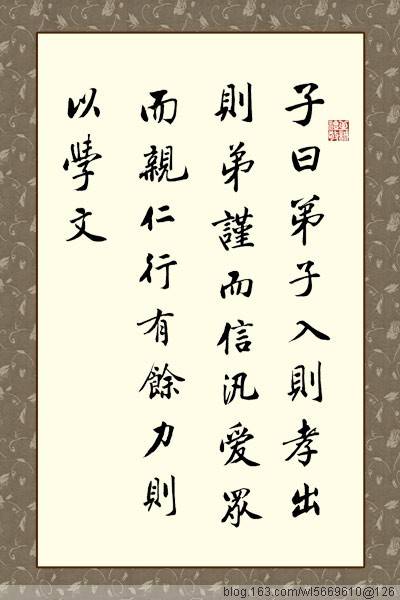 子曰弟子入則孝出
則弟謹而信汎愛眾
而親仁行有餘力則
以學文
blog.163.com/wl5669610@126